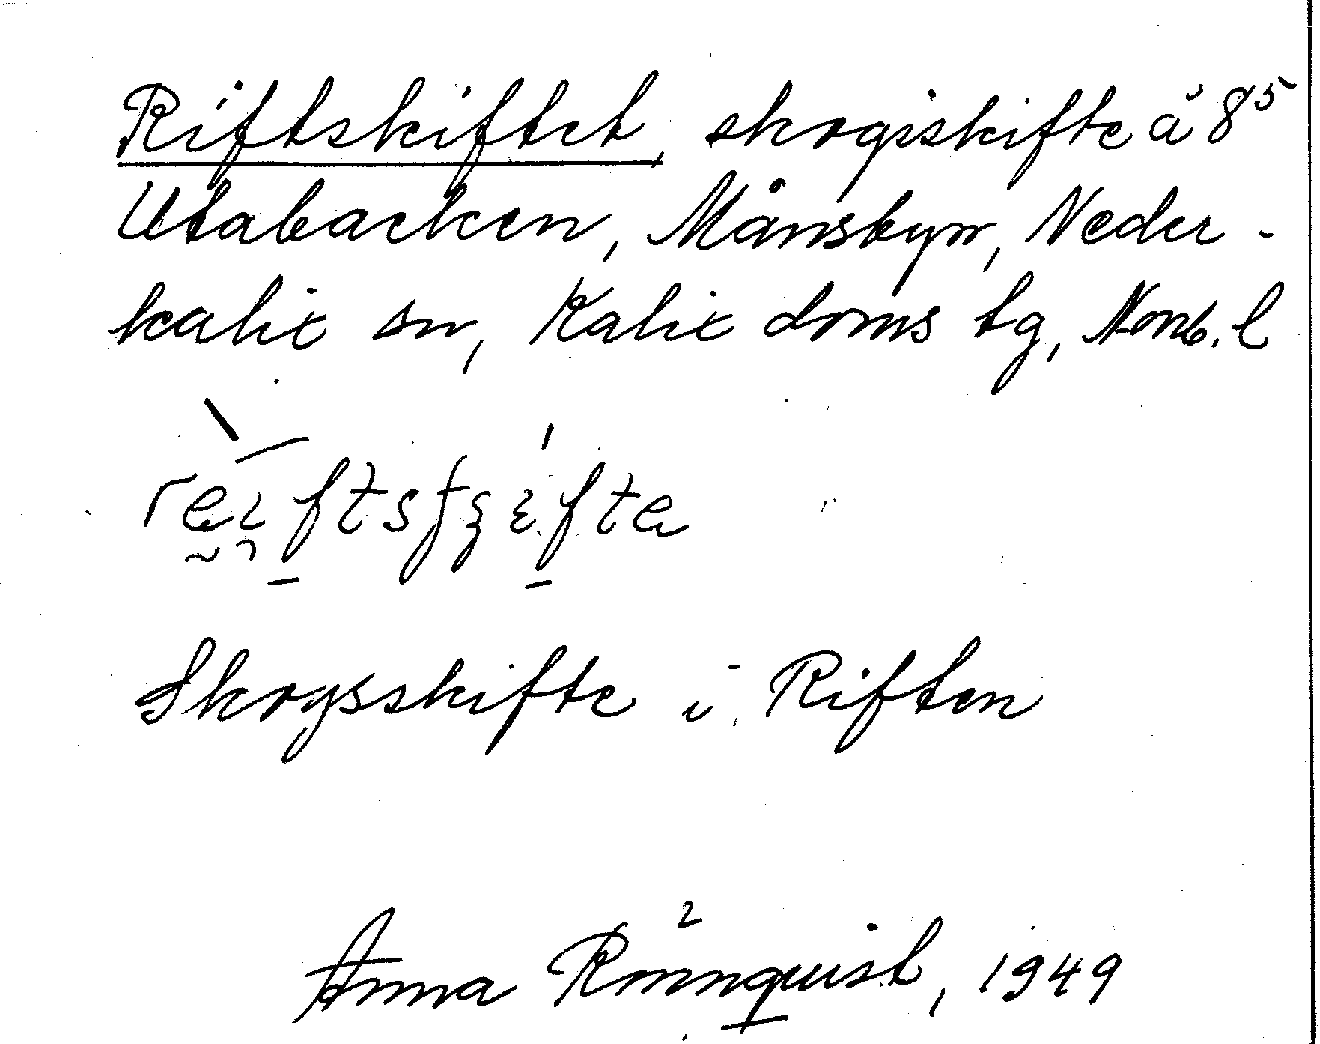 Riftskiftet, skogsskifte å 8⁵
Utabacken, Månsbyn, Neder-
kalix sn, Kalix doms tg, Norrb. l
Skogsskifte i Riften
Anna Rönnquist, 1949